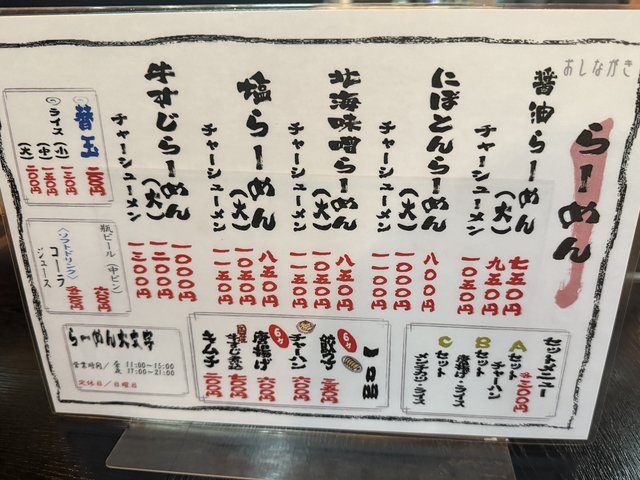 おしながき
らーめん
醤油らーめん 七五〇円
(大) 九五〇円
チャーシューメン 一〇五〇円
にぼとんらーめん 八〇〇円
(大) 一〇〇〇円
チャーシューメン 一一〇〇円
北海味噌らーめん 八五〇円
(大) 一〇五〇円
チャーシューメン 一一五〇円
塩らーめん 八五〇円
(大) 一〇五〇円
チャーシューメン 一一五〇円
牛すじらーめん 一〇〇〇円
(大) 一二〇〇円
チャーシューメン 一三〇〇円
替玉
ライス(小)
(中)
(大)
瓶ビール(中ビン)
〈ソフトドリンク〉
コーラ
ジュース
セットメニュー
Aセット
チャーハン
Bセット
唐揚げ・ライス
Cセット
メンチカツ・ライス
一口皿
6ヶ 餃子
チャーハン
6ヶ 唐揚げ
国産牛すじ煮込
キムチ
らーめん大文字
営業時間/ 昼 11:00~15:00
夜 17:00~21:00
定休日/日曜日